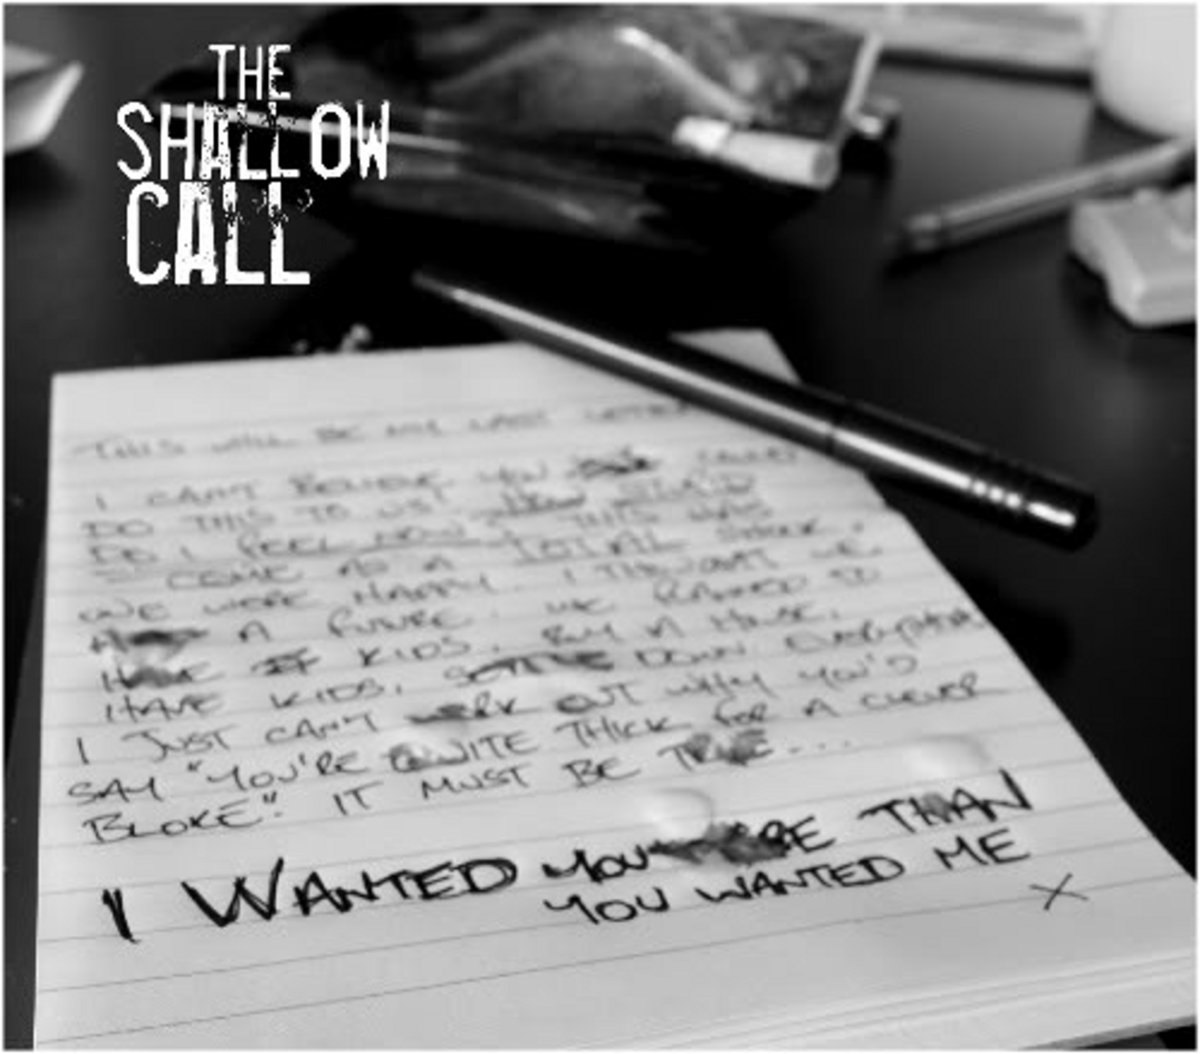 THE
SHALLOW
CALL
THIS WILL BE MY LAST LETTER
I CAN'T BELIEVE YOU COULD
DO THIS TO US! HOW STUPID
DO I FEEL NOW? THIS HAS
COME AS A TOTAL SHOCK.
WE WERE HAPPY. I THOUGHT WE
A FUTURE. WE PLANNED TO
KIDS. BUY A HOUSE.
HAVE KIDS. SETTLE DOWN. EVERYTHING
I JUST CAN'T WORK OUT WHY YOU'D
SAY "YOU'RE QUITE THICK FOR A CLEVER
BLOKE." IT MUST BE TRUE...
I WANTED YOU MORE THAN
YOU WANTED ME
X